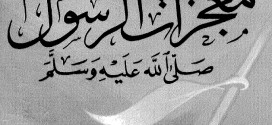 معجزات الرسول
صَلَّىٰ اللَّه عَلَيْهِ وَسَلَّمَ